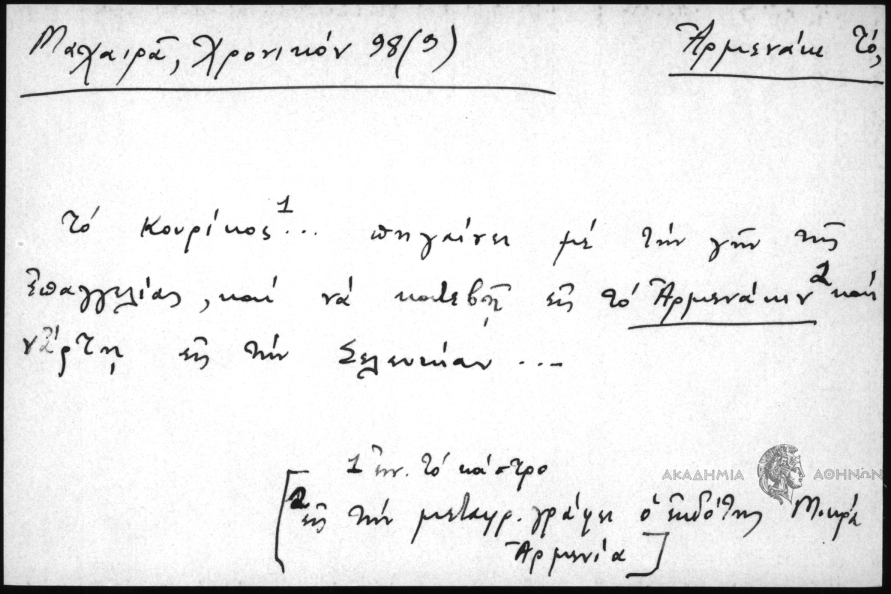 Μαχαιρᾶ, Χρονικόν 98(9) Ἀρμενάκι τό,
τό Κουρίκος¹... πηγαίνει μέ τήν γῆν τῆς
Ἐπαγγελίας, καί νά κατεβῇ εἰς τό Ἀρμενάκιν² καί
νἄρτῃ εἰς τήν Σελευκίαν ...
1 ἐν. τό κάστρο
2 εἰς τήν μεταγρ. γράφει ὁ ἐκδότης Μικρά
Ἀρμενία]
ΑΚΑΔΗΜΙΑ ΑΘΗΝΩΝ